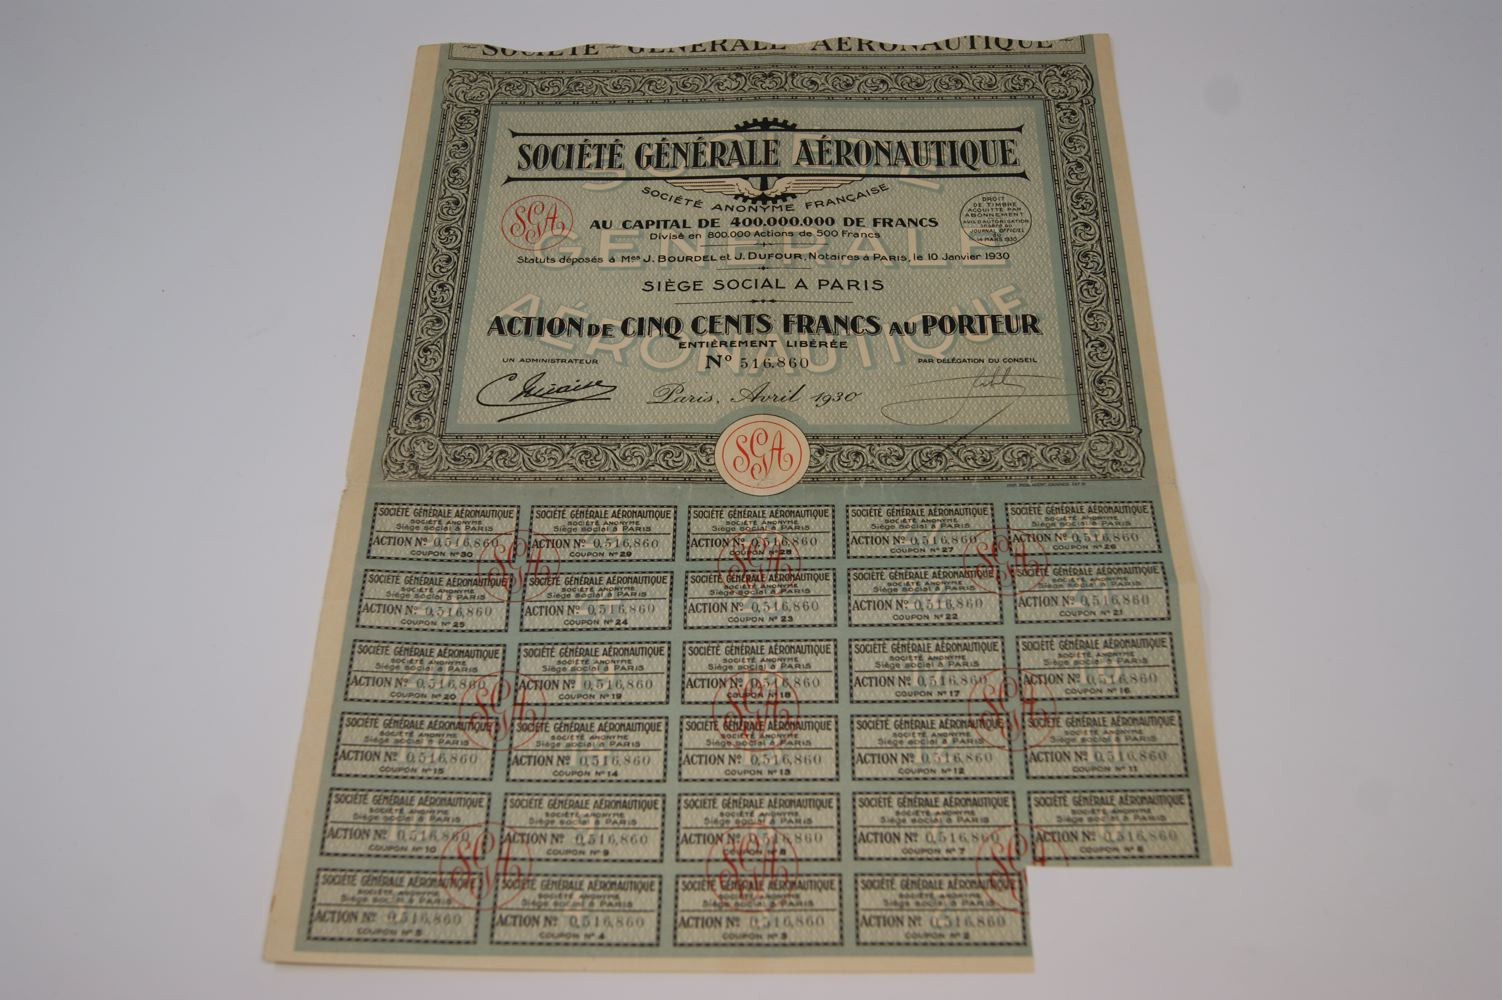 SOCIÉTÉ GÉNÉRALE AÉRONAUTIQUE
SOCIÉTÉ GÉNÉRALE AÉRONAUTIQUE
SOCIÉTÉ ANONYME FRANÇAISE
SGA
AU CAPITAL DE 400.000.000 DE FRANCS
Divisé en 800.000 Actions de 500 Francs
DROIT
DE TIMBRE
ACQUITTÉ PAR
ABONNEMENT
AVIS D'AUTORISATION
INSÉRÉ AU
JOURNAL OFFICIEL
DU
14 MARS 1930
Statuts déposés à Mes J. BOURDEL et J. DUFOUR, Notaires à PARIS, le 10 Janvier 1930
SIÈGE SOCIAL A PARIS
ACTION DE CINQ CENTS FRANCS AU PORTEUR
ENTIÈREMENT LIBÉRÉE
No 516,860
UN ADMINISTRATEUR
PAR DÉLÉGATION DU CONSEIL
Paris, Avril 1930
SOCIÉTÉ GÉNÉRALE AÉRONAUTIQUE
SGA
SOCIÉTÉ GÉNÉRALE AÉRONAUTIQUE
SOCIÉTÉ ANONYME
Siège social à PARIS
ACTION No 0,516,860
COUPON No 30
SOCIÉTÉ GÉNÉRALE AÉRONAUTIQUE
SOCIÉTÉ ANONYME
Siège social à PARIS
ACTION No 0,516,860
COUPON No 29
SOCIÉTÉ GÉNÉRALE AÉRONAUTIQUE
SOCIÉTÉ ANONYME
Siège social à PARIS
ACTION No 0,516,860
COUPON No 28
SOCIÉTÉ GÉNÉRALE AÉRONAUTIQUE
SOCIÉTÉ ANONYME
Siège social à PARIS
ACTION No 0,516,860
COUPON No 27
SOCIÉTÉ GÉNÉRALE AÉRONAUTIQUE
SOCIÉTÉ ANONYME
Siège social à PARIS
ACTION No 0,516,860
COUPON No 26
SOCIÉTÉ GÉNÉRALE AÉRONAUTIQUE
SOCIÉTÉ ANONYME
Siège social à PARIS
ACTION No 0,516,860
COUPON No 25
SOCIÉTÉ GÉNÉRALE AÉRONAUTIQUE
SOCIÉTÉ ANONYME
Siège social à PARIS
ACTION No 0,516,860
COUPON No 24
SOCIÉTÉ GÉNÉRALE AÉRONAUTIQUE
SOCIÉTÉ ANONYME
Siège social à PARIS
ACTION No 0,516,860
COUPON No 23
SOCIÉTÉ GÉNÉRALE AÉRONAUTIQUE
SOCIÉTÉ ANONYME
Siège social à PARIS
ACTION No 0,516,860
COUPON No 22
SOCIÉTÉ GÉNÉRALE AÉRONAUTIQUE
SOCIÉTÉ ANONYME
Siège social à PARIS
ACTION No 0,516,860
COUPON No 21
SOCIÉTÉ GÉNÉRALE AÉRONAUTIQUE
SOCIÉTÉ ANONYME
Siège social à PARIS
ACTION No 0,516,860
COUPON No 20
SOCIÉTÉ GÉNÉRALE AÉRONAUTIQUE
SOCIÉTÉ ANONYME
Siège social à PARIS
ACTION No 0,516,860
COUPON No 19
SOCIÉTÉ GÉNÉRALE AÉRONAUTIQUE
SOCIÉTÉ ANONYME
Siège social à PARIS
ACTION No 0,516,860
COUPON No 18
SOCIÉTÉ GÉNÉRALE AÉRONAUTIQUE
SOCIÉTÉ ANONYME
Siège social à PARIS
ACTION No 0,516,860
COUPON No 17
SOCIÉTÉ GÉNÉRALE AÉRONAUTIQUE
SOCIÉTÉ ANONYME
Siège social à PARIS
ACTION No 0,516,860
COUPON No 16
SOCIÉTÉ GÉNÉRALE AÉRONAUTIQUE
SOCIÉTÉ ANONYME
Siège social à PARIS
ACTION No 0,516,860
COUPON No 15
SOCIÉTÉ GÉNÉRALE AÉRONAUTIQUE
SOCIÉTÉ ANONYME
Siège social à PARIS
ACTION No 0,516,860
COUPON No 14
SOCIÉTÉ GÉNÉRALE AÉRONAUTIQUE
SOCIÉTÉ ANONYME
Siège social à PARIS
ACTION No 0,516,860
COUPON No 13
SOCIÉTÉ GÉNÉRALE AÉRONAUTIQUE
SOCIÉTÉ ANONYME
Siège social à PARIS
ACTION No 0,516,860
COUPON No 12
SOCIÉTÉ GÉNÉRALE AÉRONAUTIQUE
SOCIÉTÉ ANONYME
Siège social à PARIS
ACTION No 0,516,860
COUPON No 11
SOCIÉTÉ GÉNÉRALE AÉRONAUTIQUE
SOCIÉTÉ ANONYME
Siège social à PARIS
ACTION No 0,516,860
COUPON No 10
SOCIÉTÉ GÉNÉRALE AÉRONAUTIQUE
SOCIÉTÉ ANONYME
Siège social à PARIS
ACTION No 0,516,860
COUPON No 9
SOCIÉTÉ GÉNÉRALE AÉRONAUTIQUE
SOCIÉTÉ ANONYME
Siège social à PARIS
ACTION No 0,516,860
COUPON No 8
SOCIÉTÉ GÉNÉRALE AÉRONAUTIQUE
SOCIÉTÉ ANONYME
Siège social à PARIS
ACTION No 0,516,860
COUPON No 7
SOCIÉTÉ GÉNÉRALE AÉRONAUTIQUE
SOCIÉTÉ ANONYME
Siège social à PARIS
ACTION No 0,516,860
COUPON No 6
SOCIÉTÉ GÉNÉRALE AÉRONAUTIQUE
SOCIÉTÉ ANONYME
Siège social à PARIS
ACTION No 0,516,860
COUPON No 5
SOCIÉTÉ GÉNÉRALE AÉRONAUTIQUE
SOCIÉTÉ ANONYME
Siège social à PARIS
ACTION No 0,516,860
COUPON No 4
SOCIÉTÉ GÉNÉRALE AÉRONAUTIQUE
SOCIÉTÉ ANONYME
Siège social à PARIS
ACTION No 0,516,860
COUPON No 3
SOCIÉTÉ GÉNÉRALE AÉRONAUTIQUE
SOCIÉTÉ ANONYME
Siège social à PARIS
ACTION No 0,516,860
COUPON No 2